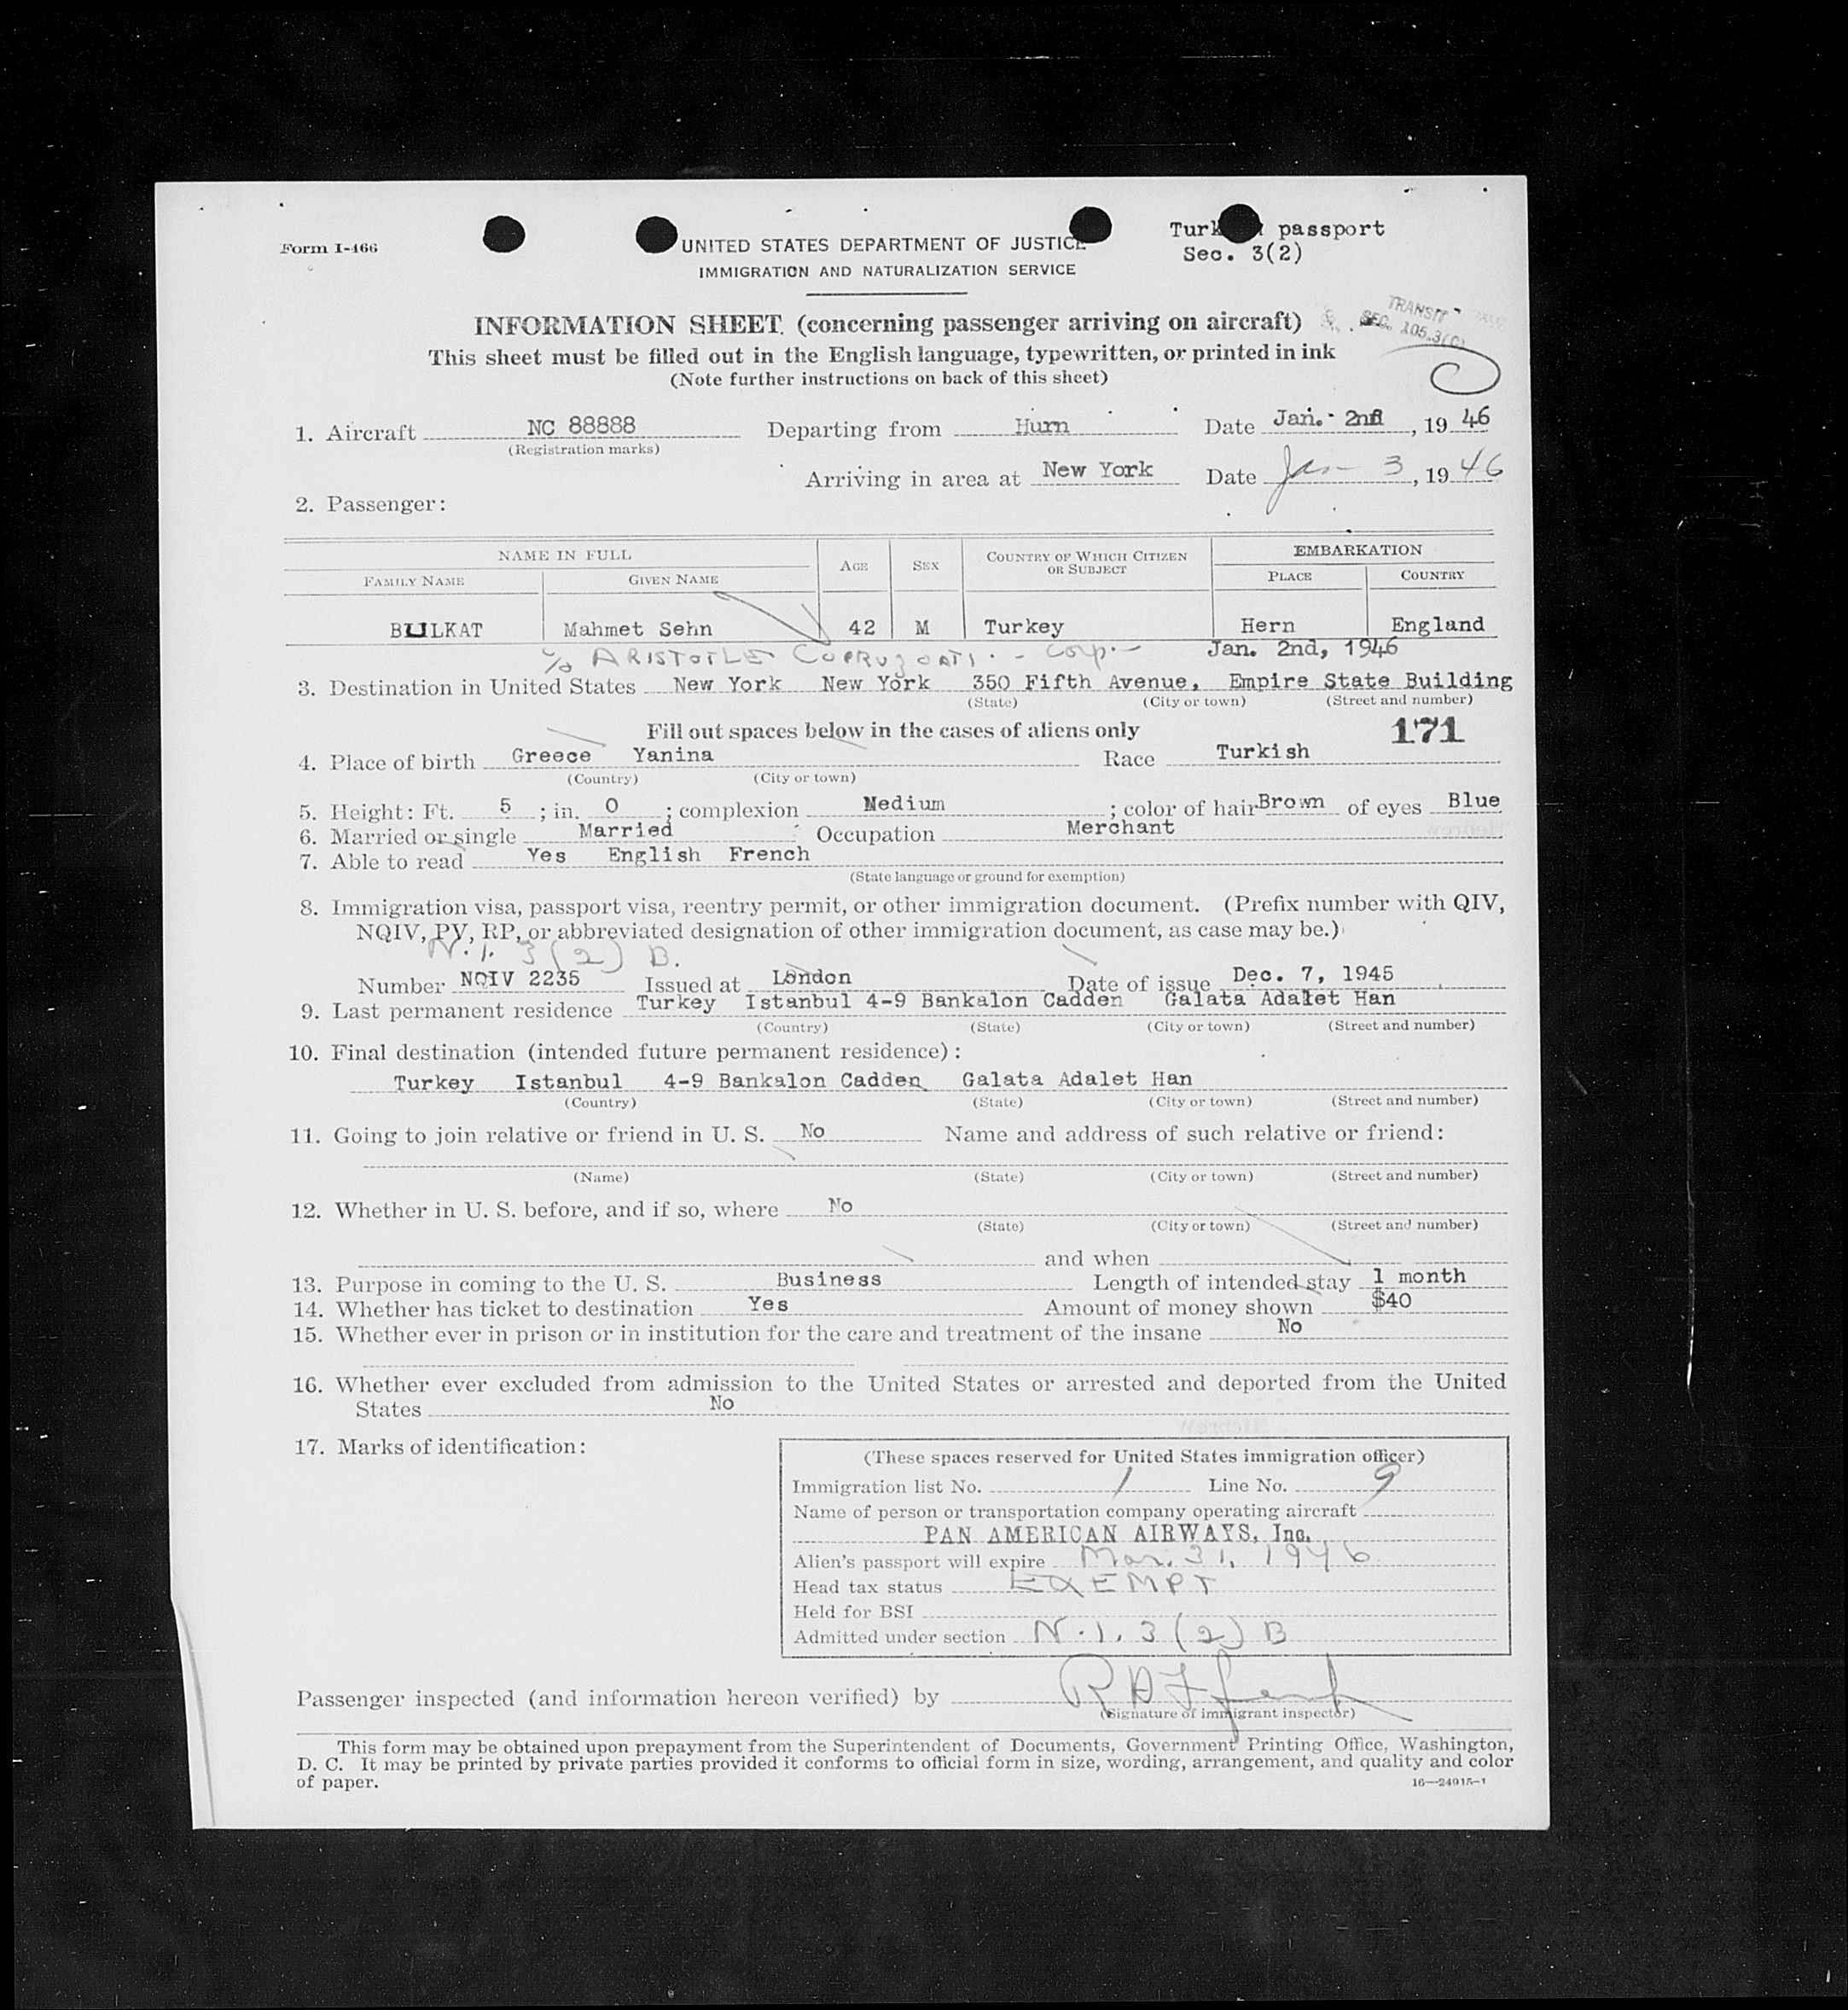 Form I-466
UNITED STATES DEPARTMENT OF JUSTICE
IMMIGRATION AND NATURALIZATION SERVICE
passport
Sec. 3(2)
TRANSIT
SEC. 105.3(C)
INFORMATION SHEET (concerning passenger arriving on aircraft)
This sheet must be filled out in the English language, typewritten, or printed in ink
(Note further instructions on back of this sheet)
1. Aircraft NC 88888 Departing from Hurn Date Jan. 2nd, 19 46
(Registration marks)
Arriving in area at New York Date Jan 3, 19 46
2. Passenger:
NAME IN FULL
FAMILY NAME GIVEN NAME AGE SEX COUNTRY OF WHICH CITIZEN OR SUBJECT EMBARKATION PLACE COUNTRY
BULKAT Mahmet Sehn 42 M Turkey Hern England
c/o ARISTOTLE Corp. Jan. 2nd, 1946
3. Destination in United States New York New York 350 Fifth Avenue, Empire State Building
(State) (City or town) (Street and number)
Fill out spaces below in the cases of aliens only 171
4. Place of birth Greece Yanina Race Turkish
(Country) (City or town)
5. Height: Ft. 5 ; in. 0 ; complexion Medium ; color of hair Brown of eyes Blue
6. Married or single Married Occupation Merchant
7. Able to read Yes English French
(State language or ground for exemption)
8. Immigration visa, passport visa, reentry permit, or other immigration document. (Prefix number with QIV,
NQIV, PV, RP, or abbreviated designation of other immigration document, as case may be.)
N.I. 3(2) B.
Number NQIV 2235 Issued at London Date of issue Dec. 7, 1945
9. Last permanent residence Turkey Istanbul 4-9 Bankalon Cadden Galata Adalet Han
(Country) (State) (City or town) (Street and number)
10. Final destination (intended future permanent residence):
Turkey Istanbul 4-9 Bankalon Cadden Galata Adalet Han
(Country) (State) (City or town) (Street and number)
11. Going to join relative or friend in U. S. No Name and address of such relative or friend:
(Name) (State) (City or town) (Street and number)
12. Whether in U. S. before, and if so, where No
(State) (City or town) (Street and number)
and when
13. Purpose in coming to the U. S. Business Length of intended stay 1 month
14. Whether has ticket to destination Yes Amount of money shown $40
15. Whether ever in prison or in institution for the care and treatment of the insane No
16. Whether ever excluded from admission to the United States or arrested and deported from the United
States No
17. Marks of identification:
(These spaces reserved for United States immigration officer)
Immigration list No. 1 Line No. 9
Name of person or transportation company operating aircraft
PAN AMERICAN AIRWAYS, Inc.
Alien's passport will expire Mar. 31, 1946
Head tax status EXEMPT
Held for BSI
Admitted under section N.I. 3(2) B
Passenger inspected (and information hereon verified) by
(Signature of immigrant inspector)
This form may be obtained upon prepayment from the Superintendent of Documents, Government Printing Office, Washington,
D. C. It may be printed by private parties provided it conforms to official form in size, wording, arrangement, and quality and color
of paper.
16—24915-1